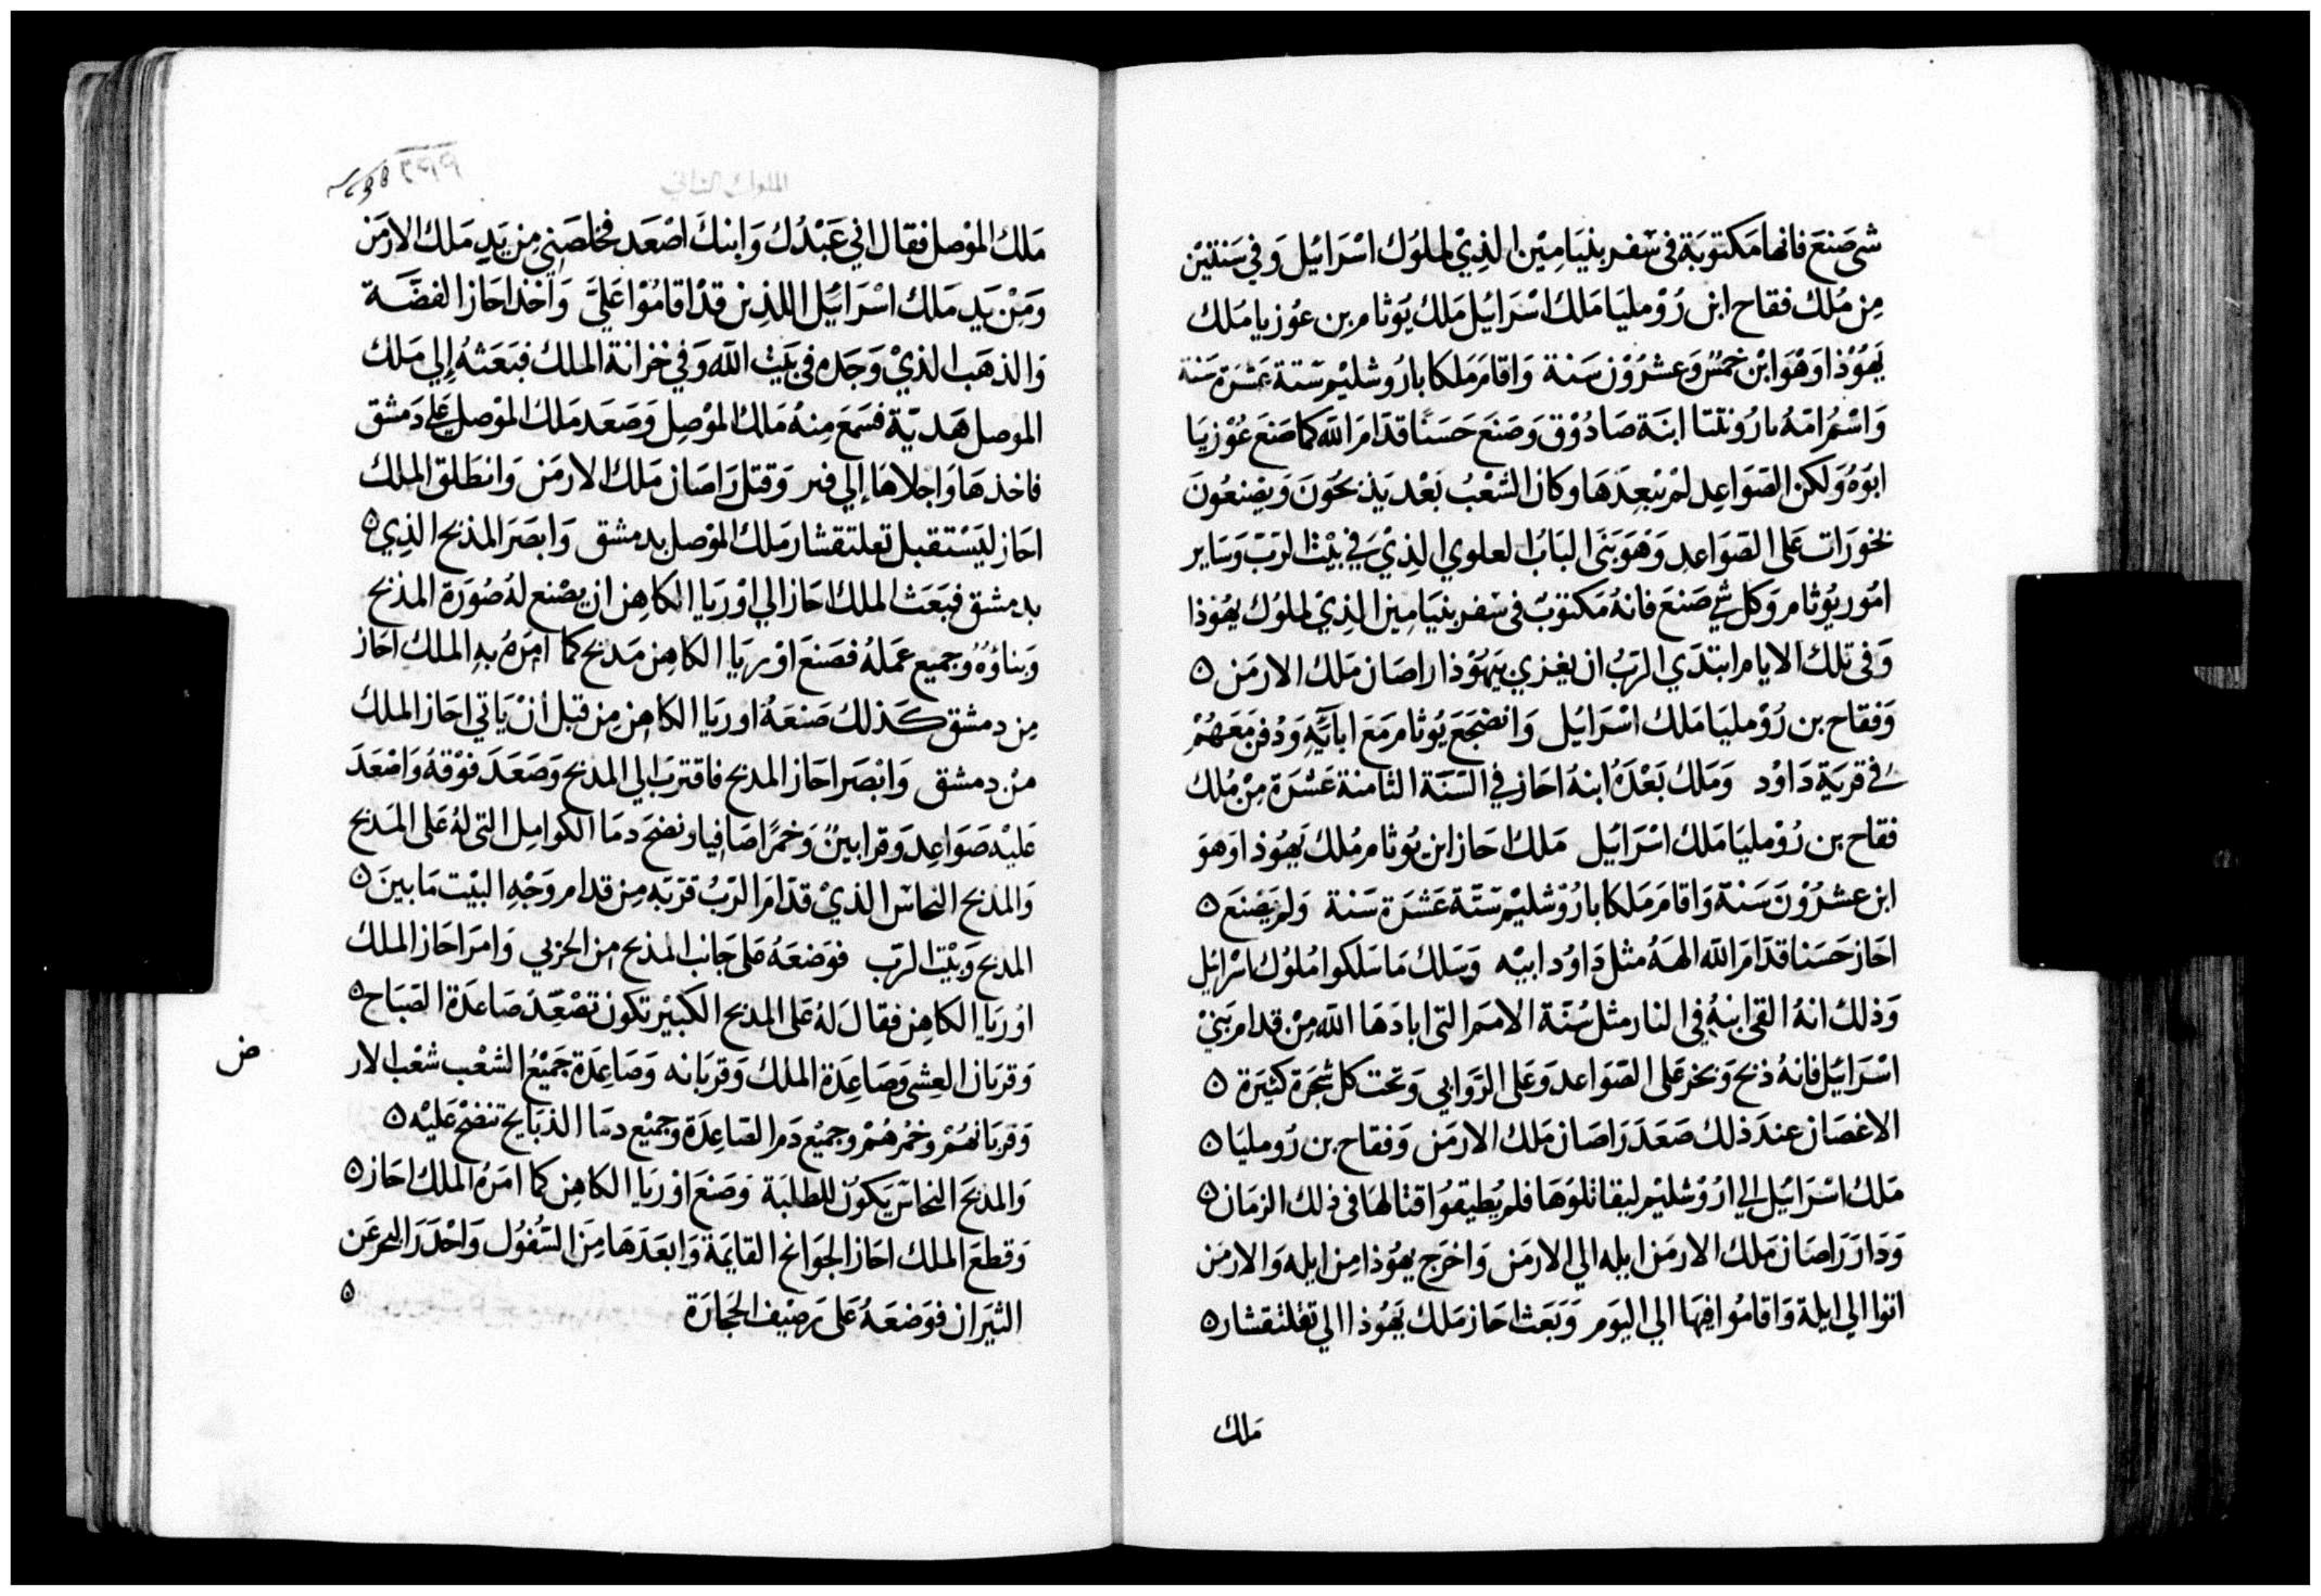 شي صَنعَ فانها مَكتوبَة في سْفر بنيَامِيْن الذِيْ لملوَك اسْرَائيل وَفي سَنتيْن
مِن مُلك فقاح ابن رُوْمليَا مَلك اسْرَائيل مَلك يُوَثام بن عوُزيا مَلك
يَهُوْذا وَهْوَ ابْن خمسٌ وَعشرُوْن سَنة وَاقامَ مَلكا بارُوشليْم سَتة عَشرَة سَنة
وَاسْمُ امّهُ ابنَة صَادُوْق وَصَنعَ حَسَنًا قدّامَ الله كما صَنعَ عُوْزيَا
ابوَهُ وَلكن الصّوَاعِد لمْ يبْعِدَهَا وَكان الشعْبُ بَعْد يَذبحُوَن وَيضْنعُونَ
بخورَات عَلى الصّوَاعِد وَهوَ بَنَى البَابَ العلوي الذِيْ في بيْت الرَبّ وَسَاير
امُور يوُثام وَكل شي صَنعَ فانهُ مَكتوَبٌ في سْفر بنيَامِين الذِيْ لملوُك يهُوْذا
وَفي تلك الايام ابتدَي الرَبُّ ان يغزي يَهُوْذا راصَان مَلك الارمَن ٥
وَفقاح بن رُوْمليَا مَلك اسْرَائيل وَانضجَعَ يُوثام مَعَ ابآئهِ وَدُفنَ مَعَهُمْ
في قريَة دَاوْد وَمَلك بَعْدَهُ ابنهُ احَاز في السَنَة الثامنة عَشْرَة مِنْ مُلك
فقاح بن رُوْمليَا مَلك اسْرَائيل مَلك احَاز ابن يوُثام مُلك يَهوُذا وَهوَ
ابن عشرُوْنَ سَنَة وَاقامَ مَلكا بارُوْشليْم سَتّة عَشَرَة سَنة وَلم يَصْنَع ٥
احَاز حَسَنا قدّامَ الله الههُ مثل دَاوُد ابيْه وَسَلك مَا سَلكوا مُلوُك اسْرائيل
وَذلك انهُ القى ابنهُ في النار مثل سُنّة الامَم التى ابادَهَا الله مِنْ قدام بَنيْ
اسْرَائيل فانهُ ذبح وَبخر عَلى الصّوَاعد وَعَلى الرّوَابي وَتحت كل شجَرَة كثيَرة ٥
الاغصَان عندَ ذلك صَعَدَ رَاصَان مَلك الارمَن وَفقاح بن رَومليَا ٥
مَلك اسْرَائيل الي ارُوْشليْم ليقاتلوَهَا فلم يُطيقوُا قتالهَا في ذلك الزمَان ٥
وَدَارَ رَاصَان مَلك الارمَن ايله الي الارمَن وَاخرَج يهوُذا مِن ايله وَالارمَن
اتوا الي ايلة وَاقامُوا فيهَا الي اليَوم وَبَعَث احَاز مَلك يَهُوْذا الي تغلثقشار ٥
مَلك
الملوك الثاني
مَلك الموْصل فقال اني عَبْدُك وَابنكَ اصْعَد فخلصَنِي مِن يَدِ مَلك الارمَن
وَمِنْ يَدِ مَلك اسْرَائيل اللذِين قدْ اقامُوْا عَليَّ وَاخذ احَاز الفضَّة
وَالذهَب الذيْ وَجَده في بَيْت الله وَفي خزانة الملك فبَعَثهُ إلي مَلك
الموصل هَديّة فسَمَعَ مِنهُ مَلك الموْصِل وَصَعَد مَلك الموْصل عَلي دَمشق
فاخذهَا وَاجلاهَا إلي وَقتل رَاصَان مَلك الارمَن وَانطَلق الملك
احَاز ليَسْتقبل تعلتقشار مَلك الموْصل بدمشق وَابصَرَ المذبح الذِي ٥
بدمشق فبَعَث الملك احَاز الي اوْرَيَا الكاهِن ان يصْنع لهُ صُوَرَة المذبَح
وَبناؤهُ وجميع عَملهُ فصَنعَ اوْريَا الكاهِن مَدبح كما امرَهُ بهِ الملك احَاز
مِن دمشق كَذلك صَنعَهُ اوريَا الكاهِن مِن قبل أنْ يَاتي احَاز الملك
منْ دمشق وَابْصَرَ احَاز المدبح فاقترب الي المدبح وَصَعَدَ فوْقهُ وَاصْعَدَ
عَليْه صَوَاعِد وَقرابينْ وَخمرًا صَافيا ونضحَ دمَا الكوامِل التى لهُ عَلى المَدبح
وَالمذبح النحاسْ الذيْ قدّامَ الرَبُّ قرّبَه مِن قدام وَجْهِ البيْت مَا بينَ ٥
المدبح وَبيْت الرَبّ فوَضعَهُ عَلى جَانب المذبح من الحزبي وَامرَ احَاز الملك
اوُريَا الكاهِن فقالَ لَهُ عَلى المدبح الكَبيْر تكون تصْعِدُ صَاعدَة الصّبَاح ٥
وَقربَان العِشى وَصَاعِدَة الملك وَقربَانه وَصَاعِدَة جَمِيْعُ الشعْب شعْب الار
ض
وَقربَانهُمْ وخمْرهُمْ وجميْع دَم الصّاعِدَة وَجميْع دمَا الذبَايح تنضحْ عَليْه ٥
وَالمدبَح النحاسْ يَكوُن للطلبَة وَصَنَعَ اوْريَا الكاهِن كما امَرَهُ الملك احَاز ٥
وَقطعَ الملك احَاز الجوَانح القايمَة وَابعَدَهَا مِنَ السّفوُل وَاحْدَرَ البحر عَن
الثيَران فوَضعَهُ عَلى رَصيْف الحجَارَة ٥